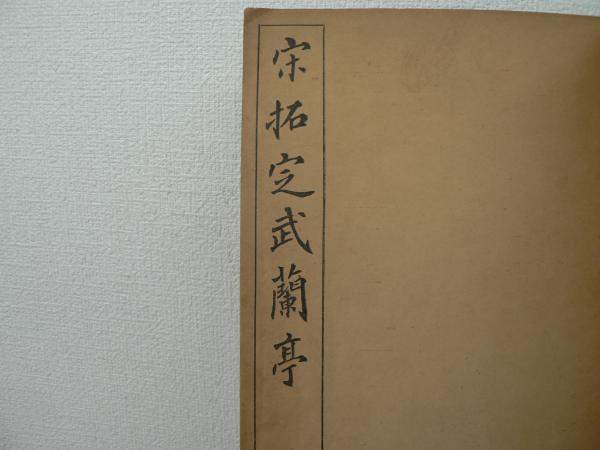 宋拓定武蘭亭